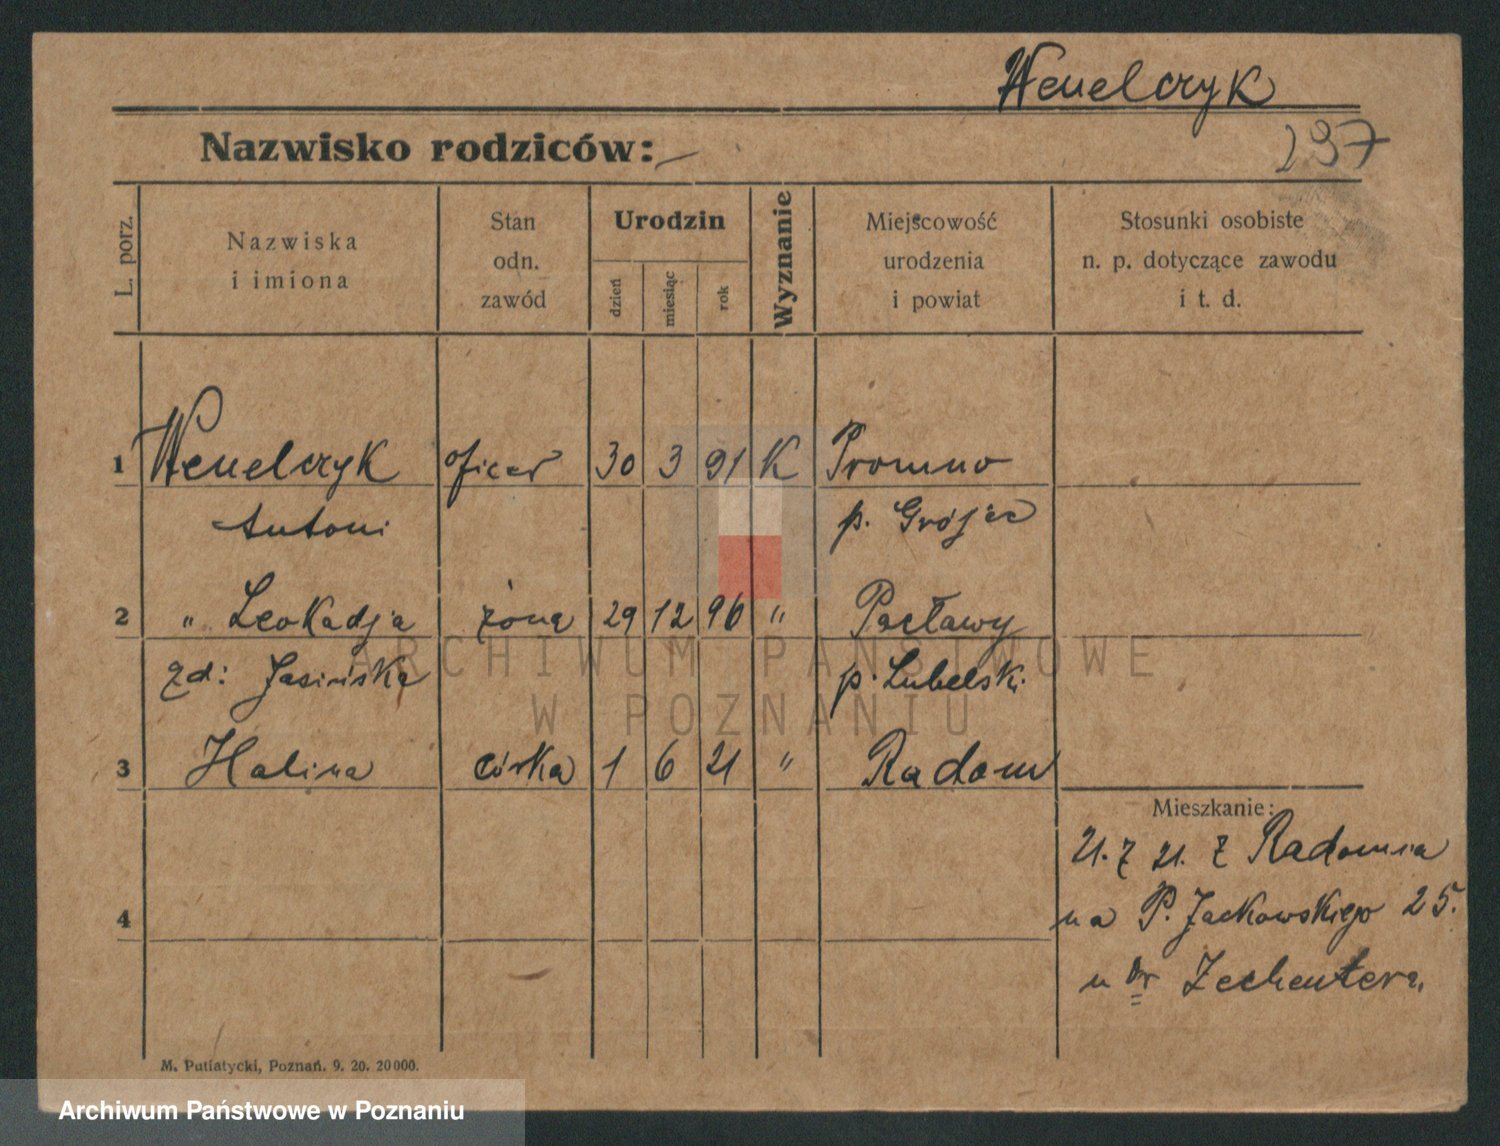 Wenelczyk
237
Nazwisko rodziców: —
L. porz.
Nazwiska
i imiona
Stan
odn.
zawód
Urodzin
dzień
miesiąc
rok
Wyznanie
Miejscowość
urodzenia
i powiat
Stosunki osobiste
n. p. dotyczące zawodu
i t. d.
1 Wenelczyk oficer 30 3 91 K Promno
Antoni p. Grójec
2 " Leokadja żona 29 12 96 " Pacławy
zd: Jasińska p. Lubelski
3 Halina córka 1 6 21 " Radom
Mieszkanie:
21. 7 21. z Radomia
4
na P. Jackowskiego 25.
u Dr Zechentera.
ARCHIWUM PAŃSTWOWE
W POZNANIU
M. Putiatycki, Poznań. 9. 20. 20000.
Archiwum Państwowe w Poznaniu